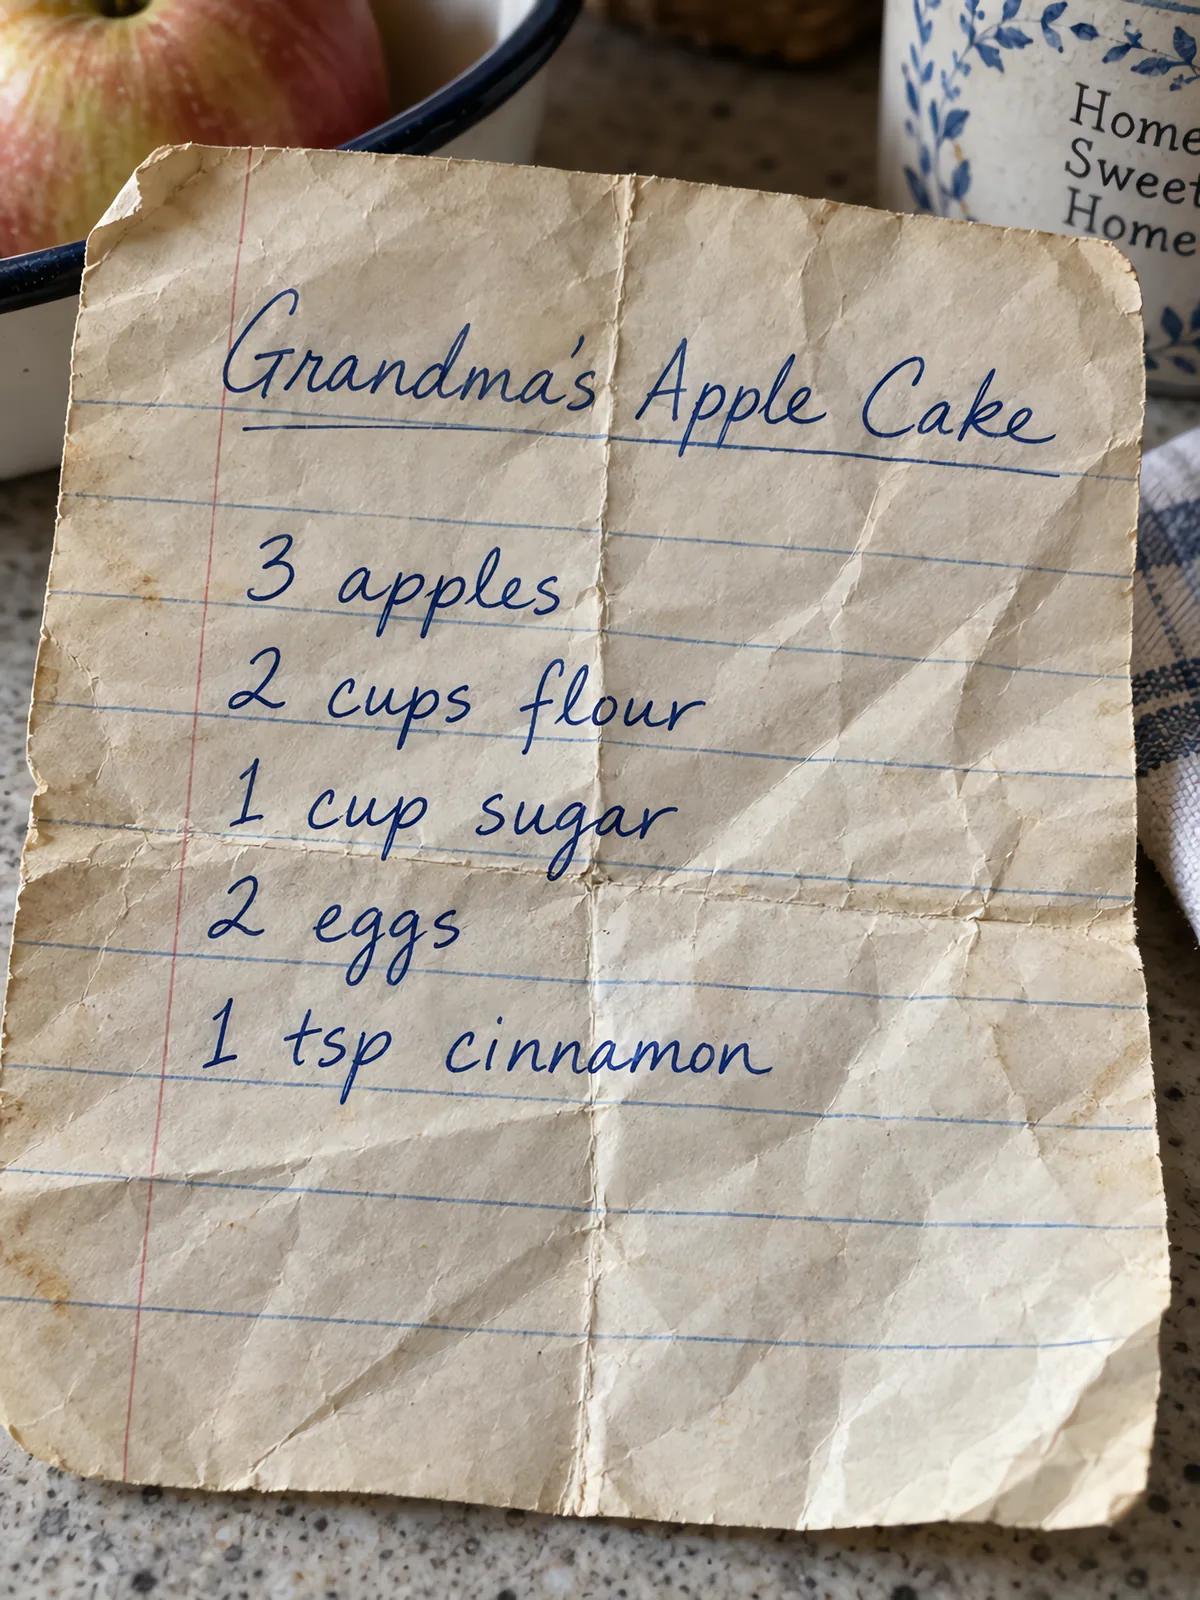 Home
Sweet
Home
Grandma's Apple Cake
3 apples
2 cups flour
1 cup sugar
2 eggs
1 tsp cinnamon